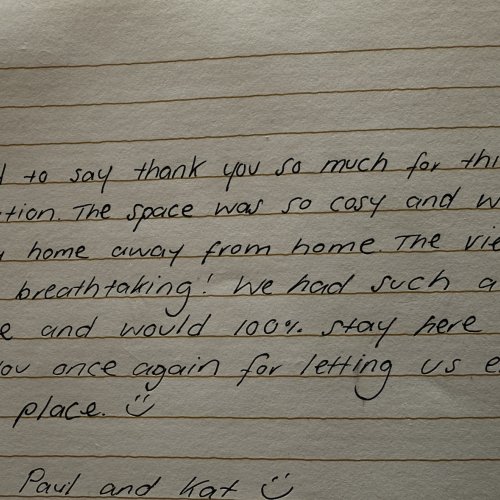 to say thank you so much for
The space was so cosy and
home away from home. The
breathtaking! We had such a
and would 100% stay here
once again for letting us
place. :)
Paul and Kat :)